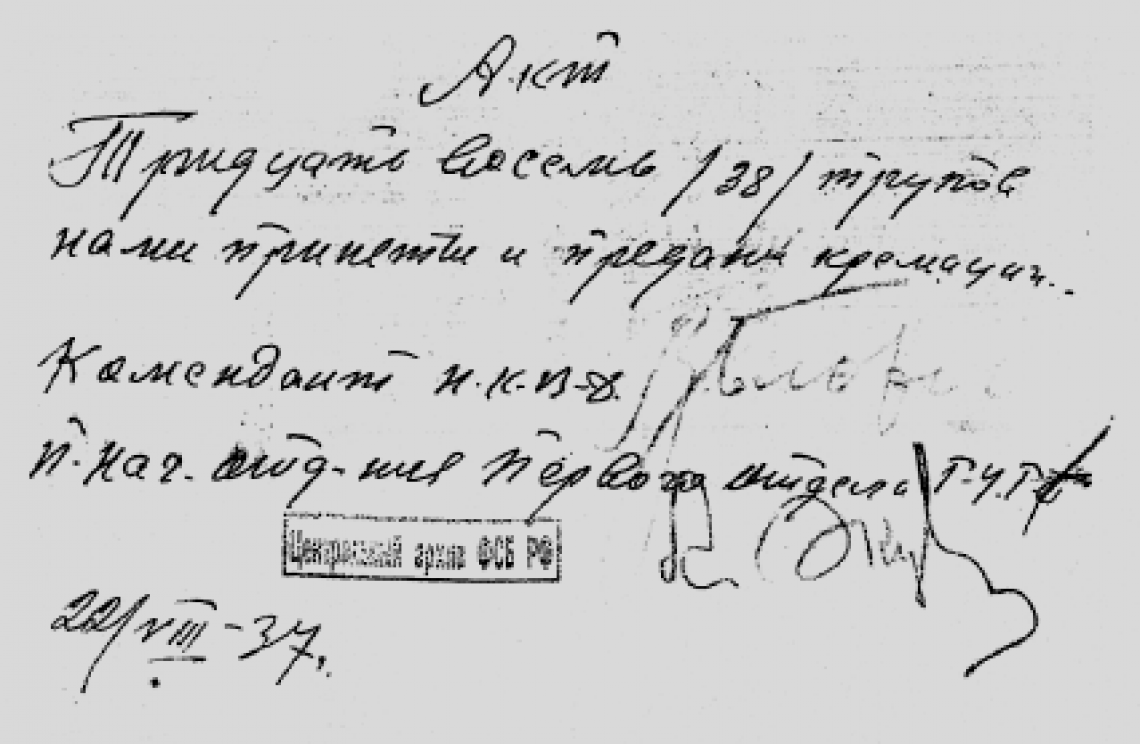 Акт
Тридцать восемь /38/ трупов
нами принети и предани кремации.
Комендант Н.К.В-Д.
П.Нач. отд-ния Первого отдела Г.У.Г.Б.
Центральный архив ФСБ РФ
22/VIII-37.